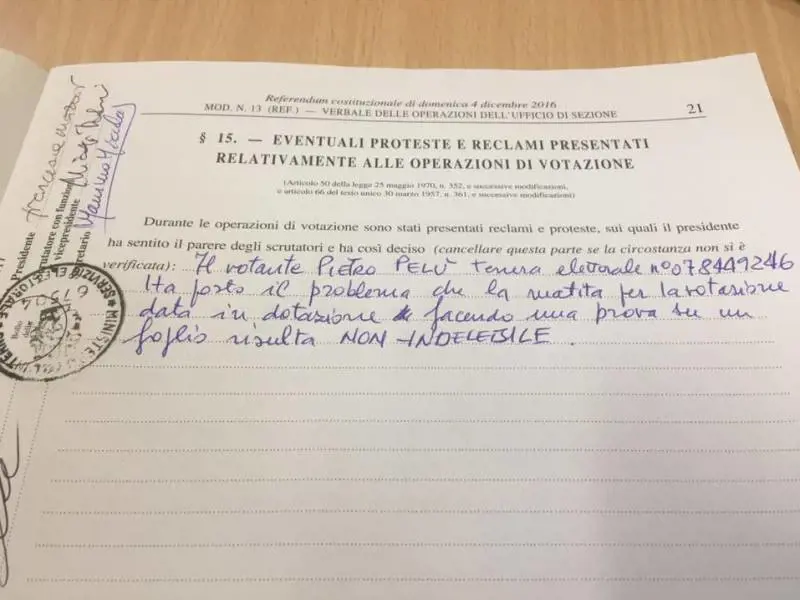 Referendum costituzionale di domenica 4 dicembre 2016
MOD. N. 13 (REF.) — VERBALE DELLE OPERAZIONI DELL'UFFICIO DI SEZIONE
21
§ 15. — EVENTUALI PROTESTE E RECLAMI PRESENTATI
RELATIVAMENTE ALLE OPERAZIONI DI VOTAZIONE
(Articolo 50 della legge 25 maggio 1970, n. 352, e successive modificazioni,
e articolo 66 del testo unico 30 marzo 1957, n. 361, e successive modificazioni)
Durante le operazioni di votazione sono stati presentati reclami e proteste, sui quali il presidente
ha sentito il parere degli scrutatori e ha così deciso (cancellare questa parte se la circostanza non si è
verificata): Il votante PIETRO PELÙ tessera elettorale n° 078449246
Ha posto il problema che la matita per la votazione
data in dotazione facendo una prova su un
foglio risulta NON INDELEBILE.
Presidente
scrutatore con funzioni
vicepresidente
segretario